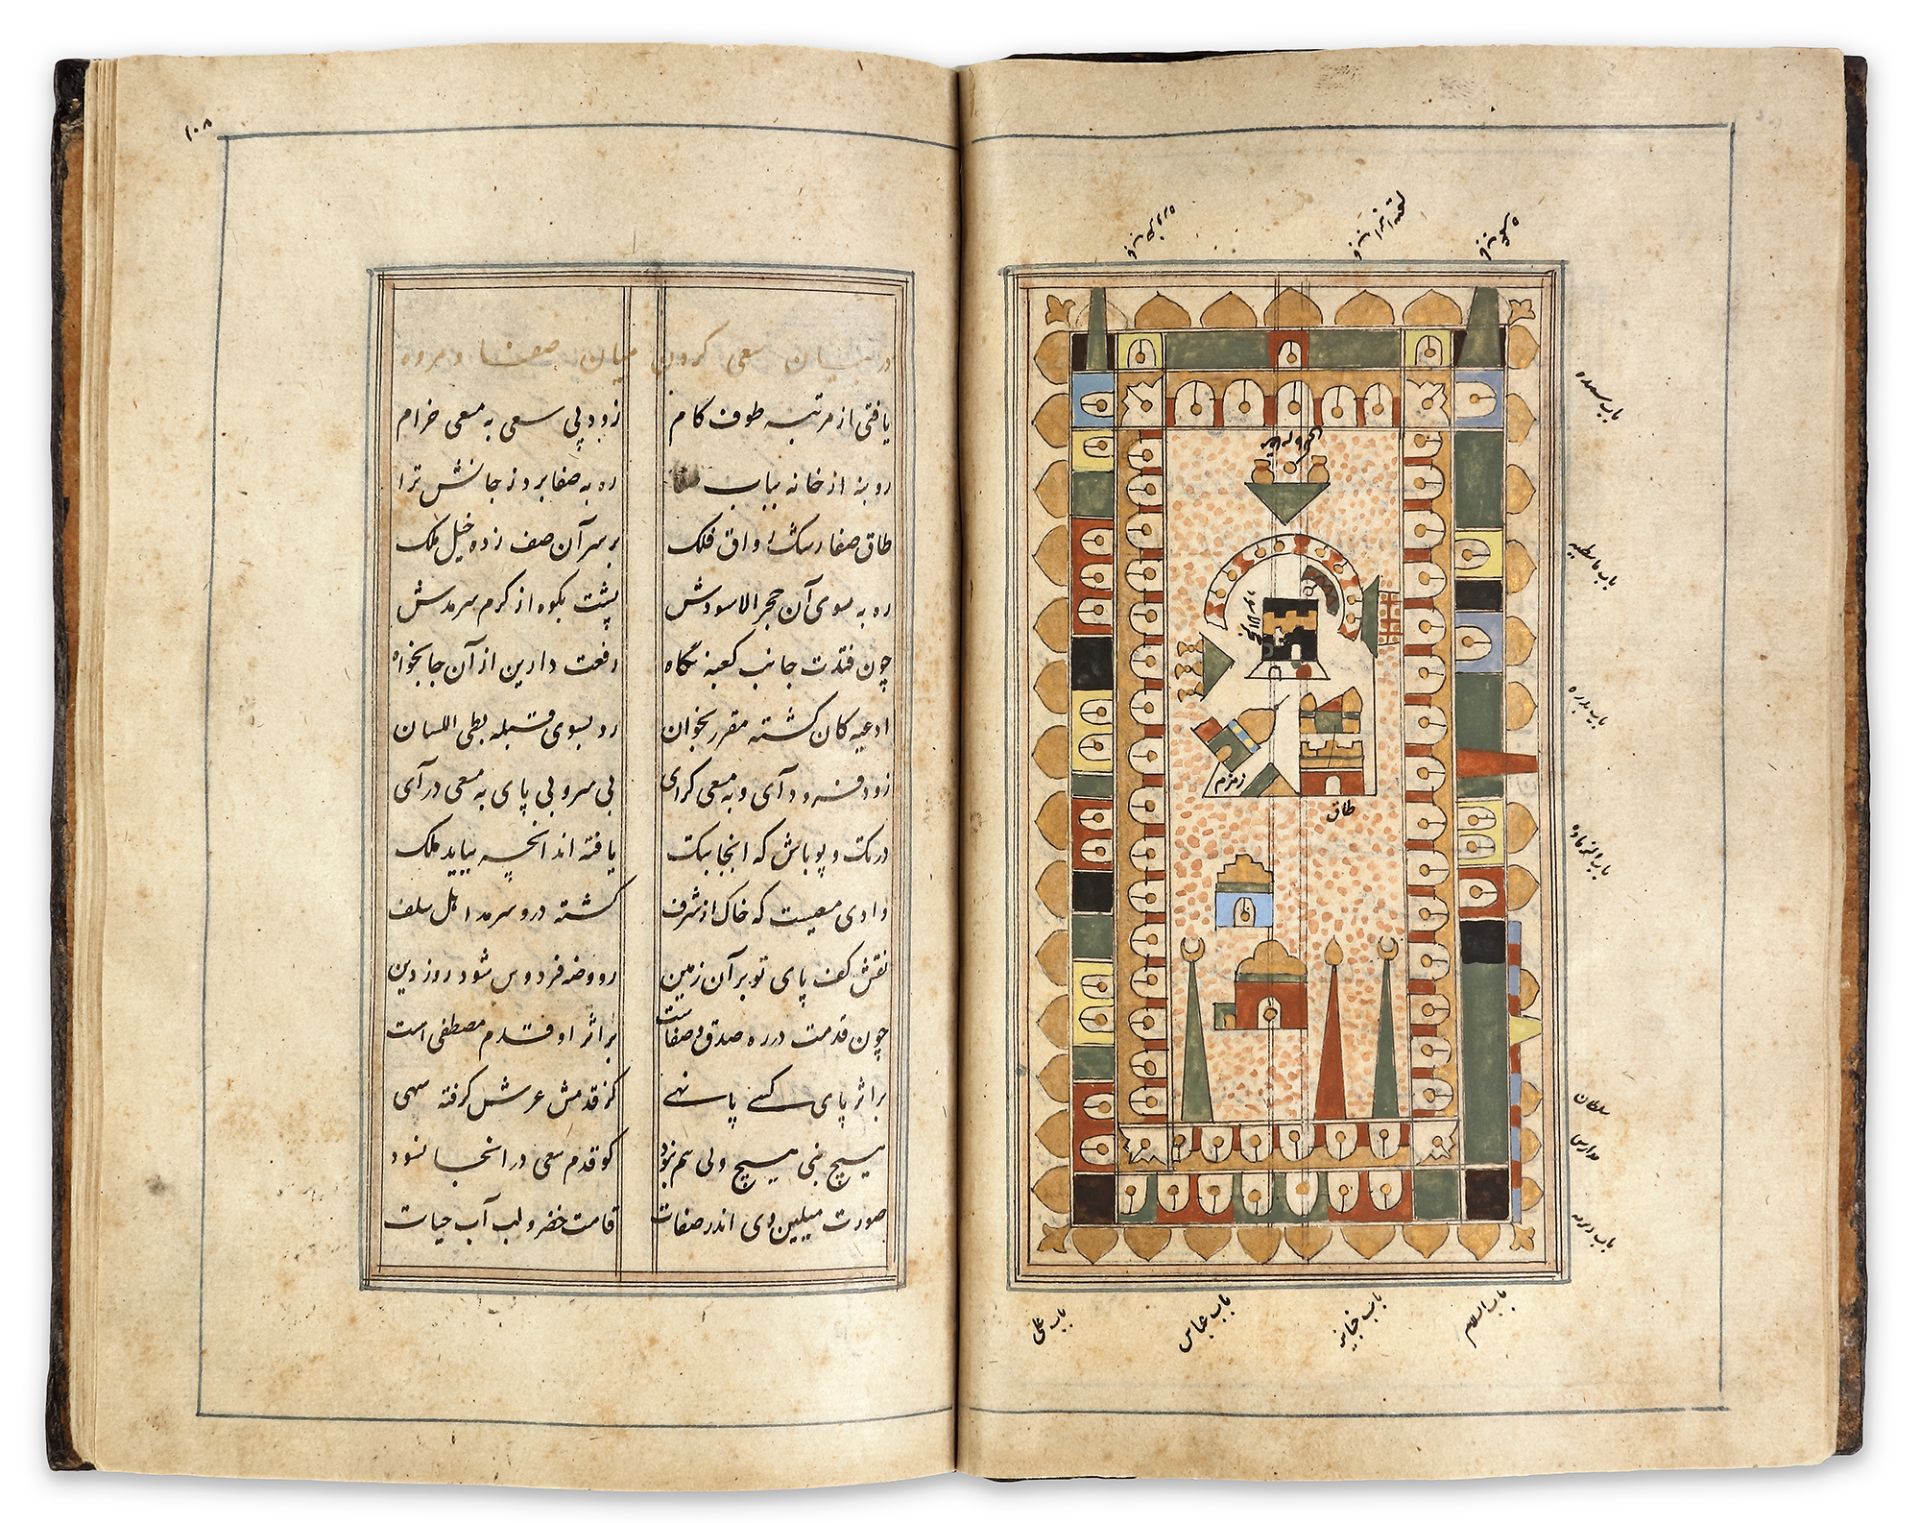 ۱۰۸
در بیان سعی کردن میان صفا و مروه
یافتی از مرتبه طوف کام زود پی سعی به مسعی خرام
رو بنه از خانه بباب صفا ره به صفا برد ز جانش ترا
طاق صفا رشک رواق فلک بر سر آن صف زده خیل ملک
ره به سوی آن حجر الاسودش پشت بکوه از کرم سرمدش
چون فتدت جانب کعبه نگاه رفعت دارین از آن جا بخواه
ادعیه کان گشته مقرر بخوان رو بسوی قبله بطی اللسان
زود فرود آی و به مسعی گرای بی سر و بی پای به مسعی در آی
در تک و پو باش که اینجا بتک یافته اند آنچه بیابد ملک
وادی مسعیست که خاک از شرف گشته درو سرمه اهل سلف
نقش کف پای تو بر آن زمین روضه فردوس شود روز دین
چون قدمت در ره صدق و صفاست بر اثر او قدم مصطفی است
بر اثر پای کسی پا نهی کز قدمش عرش گرفته سهی
هیچ نبی هیچ ولی هم نبود کو قدم سعی در آنجا نسود
صورت میلین وی اندر صفات قامت خضر و لب آب حیات
زمزم
طاق
سلطان
مدارس
باب السلام
باب عباس
باب علی